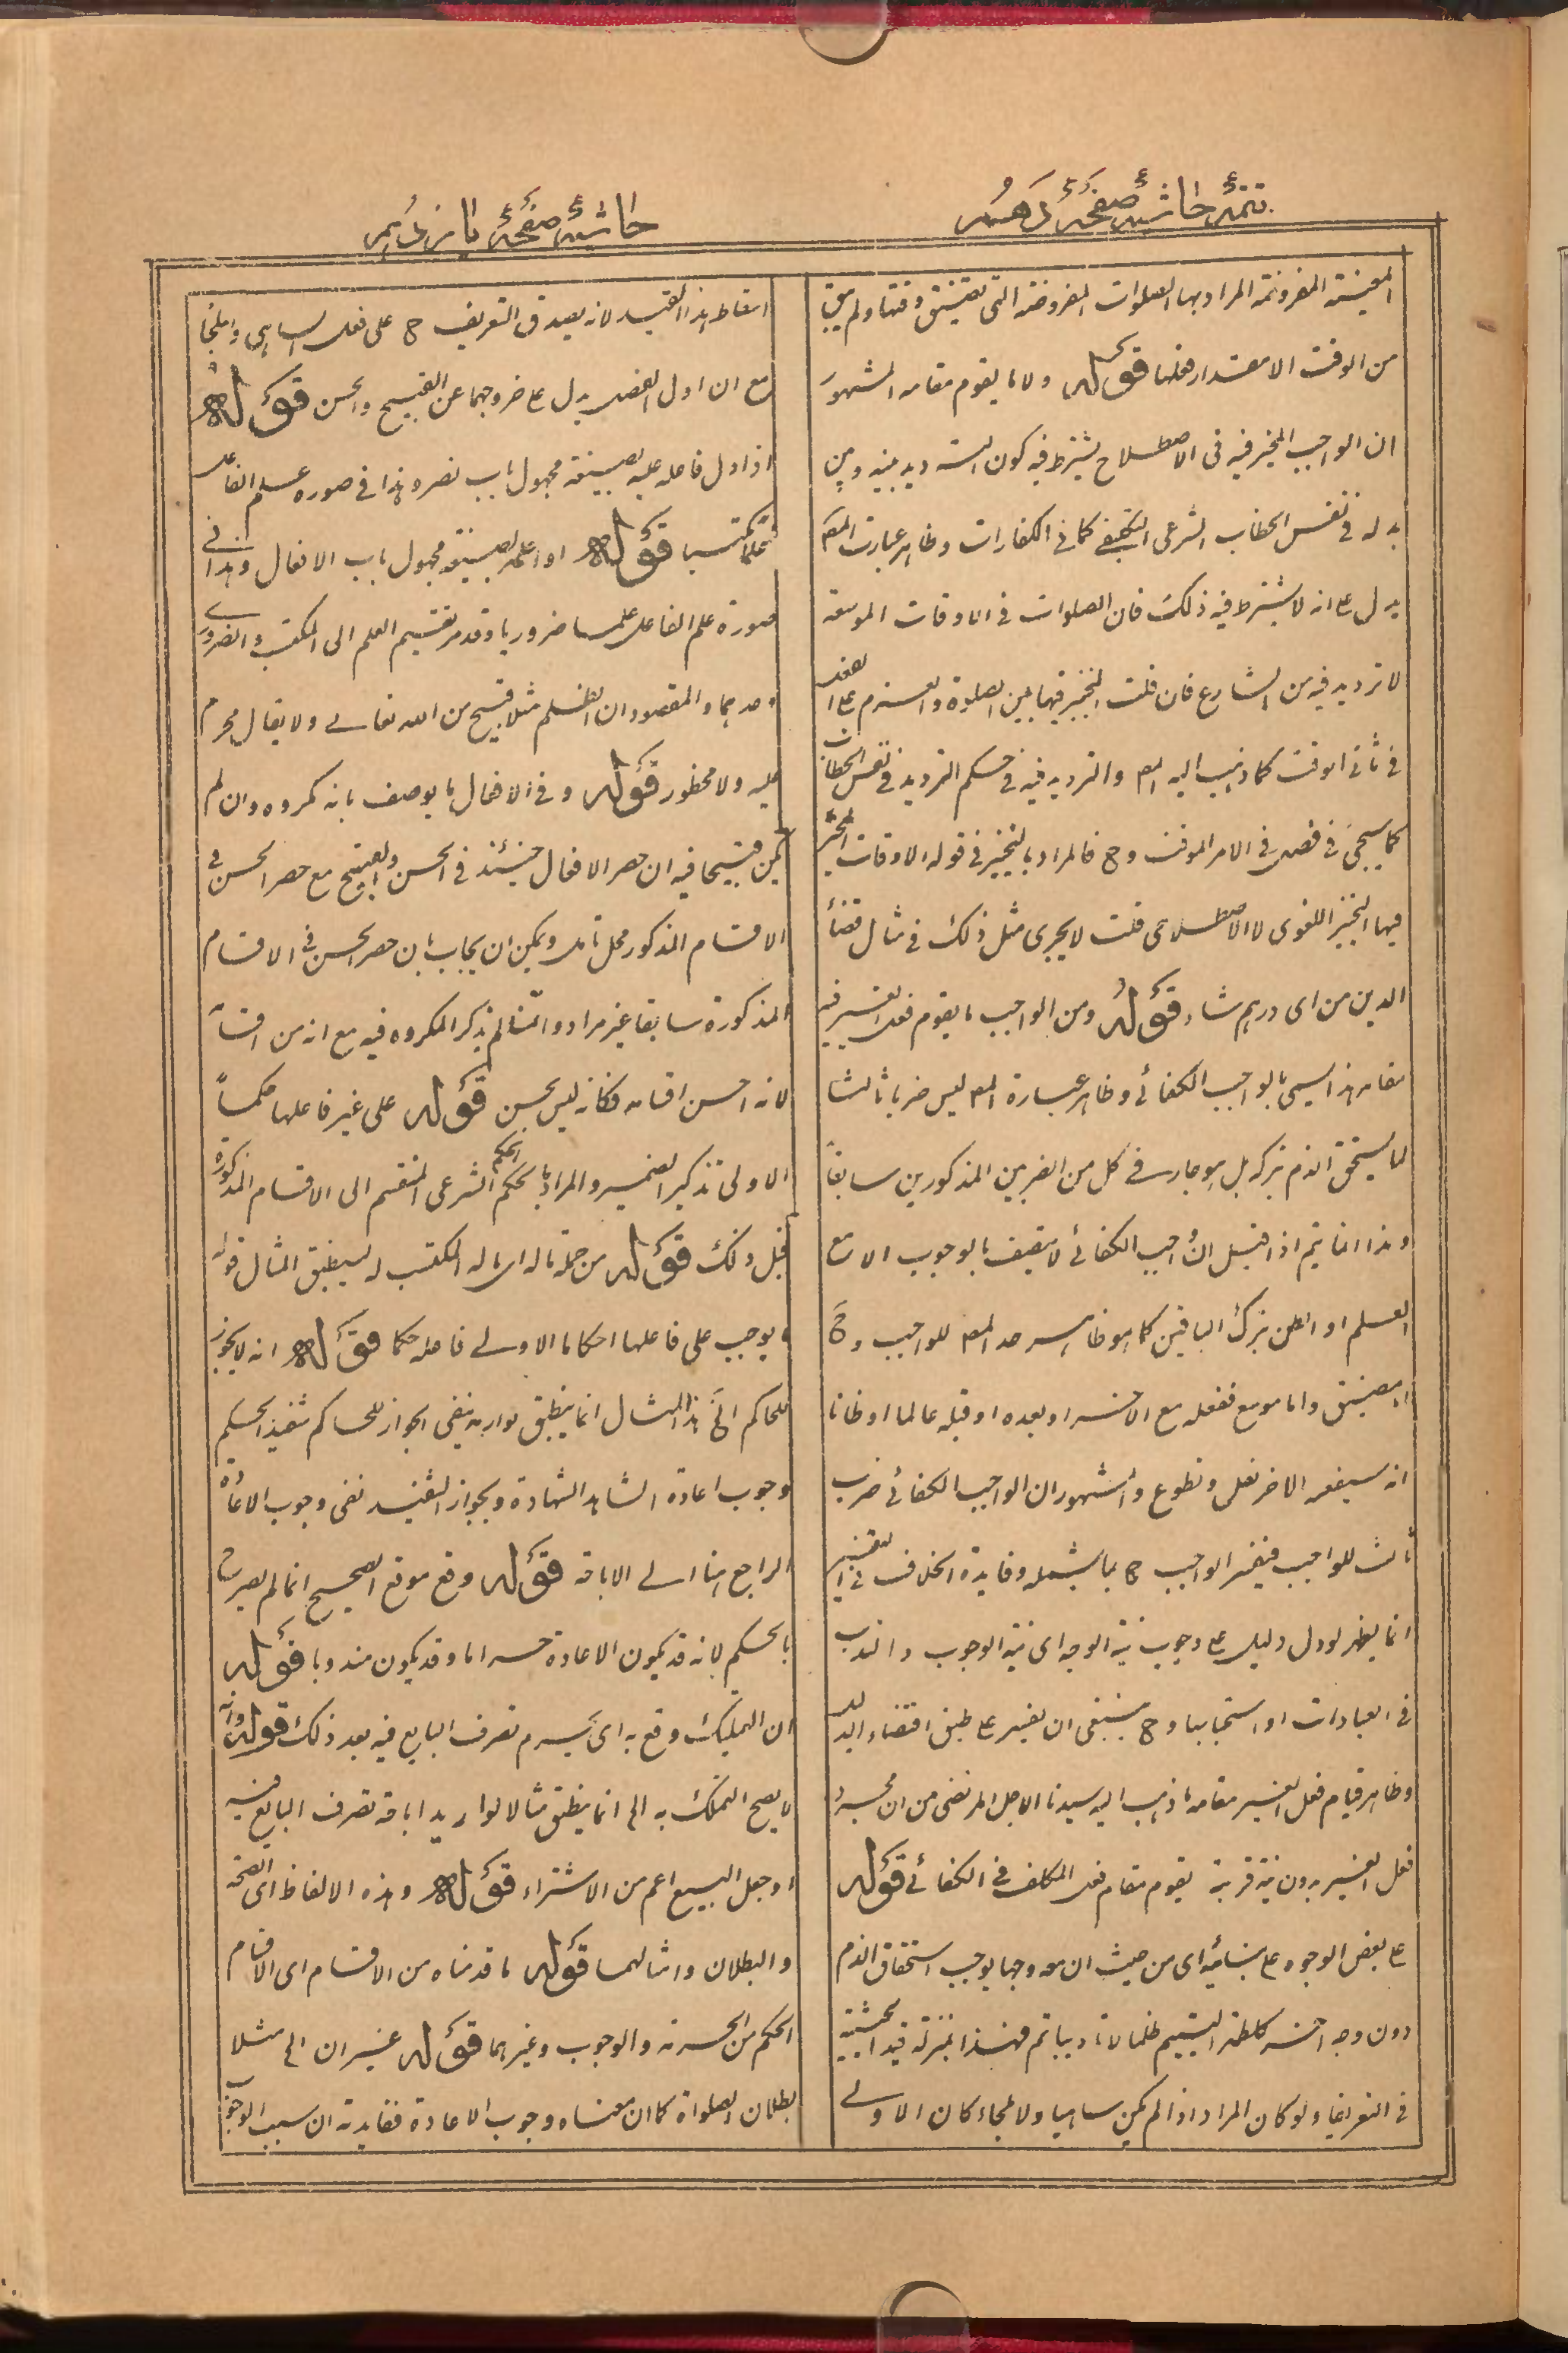 تتمۀ حاشیۀ صفحۀ دهم
المعينة المفروضة المراد بها الصلوات المفروضة التى تضيق وقتها ولم يبق
من الوقت الا مقدار فعلها قوله ولا ما يقوم مقامه المشهور
ان الواجب المخير فيه فى الاصطلاح يشترط فيه كون الترديد بينه وبين
بدله فى نفس الخطاب الشرعى التكليفى كما فى الكفارات وظاهر عبارت المص
يدل ع انه لا يشترط فيه ذلك فان الصلوات فى الاوقات الموسعة
لا ترديد فيه من الشارع فان قلت التخيير فيها بين الصلوة والعزم ع الفعل
فى ثانى الوقت كما ذهب اليه المص والترديد فيه فى حكم الترديد فى نفس الخطاب
كما سيجئ فى فصل فى الامر الموقت وح فالمراد بالتخيير فى قوله الاوقات المخير
فيها التخيير اللغوى لا الاصطلاحى قلت لا يجرى مثل ذلك فى مثال قضاء
الدين من اى درهم شاء قوله ومن الواجب ما يقوم فعل الغير فيه
مقامه هذا يسمى بالواجب الكفائى وظاهر عبارة المص ليس ضربا ثالثا
لما يستحق الذم بتركه بل هو جار فى كل من الضربين المذكورين سابقا
وهذا انما يتم اذا قيل ان الواجب الكفائى لا يتصف بالوجوب الا مع
العلم او الظن بترك الباقين كما هو ظاهر حد المص للواجب وح
اما مضيق واما موسع ففعله مع الاخر او بعده او قبله عالما او ظانا
انه سيفعله الاخر نفل وتطوع والمشهور ان الواجب الكفائى ضرب
ثالث للواجب فيفسر الواجب ح بما يشمله وفايدة الخلاف فى التفسير
انما يظهر لو دل دليل ع وجوب نية الوجه اى نية الوجوب والندب
فى العبادات او استحبابها وح ينبغى ان يفسر ع طبق اقتضاء الدليل
وظاهر قيام فعل الغير مقامه ما ذهب اليه سيدنا الاجل المرتضى من ان مجرد
فعل الغير بدون نية قربة يقوم مقام فعل المكلف فى الكفائى قوله
ع بعض الوجوه ع بنائية اى من حيث ان مه وجها يوجب استحقاق الذم
دون وجه اخر كلطمة اليتيم ظلما لا تاديبا ثم هذا بمنزلة قيد الحيثية
فى التعريف ولو كان المراد اذا لم يكن ساهيا ولا ملجاء كان الاولى
حاشیۀ صفحۀ یازدهم
اسقاط هذا القيد لانه يصدق التعريف ح على فعل الساهى والملجا
مع ان اول الفصل يدل ع خروجهما عن القبيح والحسن قوله
اذا دل فاعله عليه بصيغة مجهول باب نصر وهذا فى صورة علم الفاعل
علما مكتسبا قوله او اعلم بصيغة مجهول باب الافعال وهذا فى
صورة علم الفاعل علما ضروريا وقد مر تقسيم العلم الى المكتسب والضرورى
وحدهما والمقصود ان الظلم مثلا قبيح من الله تعالى ولا يقال محرم
عليه ولا محظور قوله وفى الافعال ما يوصف بانه مكروه وان لم
يكن قبيحا فيه ان حصر الافعال حينئذ فى الحسن والقبيح مع حصر الحسن فى
الاقسام المذكور محل تامل ويمكن ان يجاب بان حصر الحسن فى الاقسام
المذكورة سابقا غير مراد وانما لم يذكر المكروه فيه مع انه من اقسامه
لانه اخس اقسامه فكانه ليس بحسن قوله على غير فاعلها حكما
الاولى تذكير الضمير والمراد بالحكم الحكم الشرعى المنقسم الى الاقسام المذكورة
قبل ذلك قوله من جملة ماله اى ماله المكتسب له لينطبق المثال قوله
ما يوجب على فاعلها احكاما الاولى فاعله حكما قوله انه لا يجوز
للحاكم الخ هذا المثال انما ينطبق لو اريد بنفى الجواز للحاكم تنفيذ الحكم
وجوب اعادة الشاهد الشهادة وبجواز التنفيذ نفى وجوب الاعادة
الراجع هنا الى الاباحة قوله وقع موقع الصحيح انما لم يصرح
بالحكم لانه قد يكون الاعادة حراما وقد يكون مندوبا قوله
ان التمليك وقع به اى يحرم تصرف البايع فيه بعد ذلك قوله وانه
لا يصح التملك به الخ انما ينطبق مثالا لو اريد اباحة تصرف البايع فيه
او جعل البيع اعم من الاشتراء قوله وهذه الالفاظ اى الصحة
والبطلان وامثالهما قوله ما قدمناه من الاقسام اى الاقسام
الحكم من الحرمة والوجوب وغيرهما قوله غير ان الخ مثلا
بطلان الصلواة كان معناه وجوب الاعادة ففايدته ان سبب الوجوب